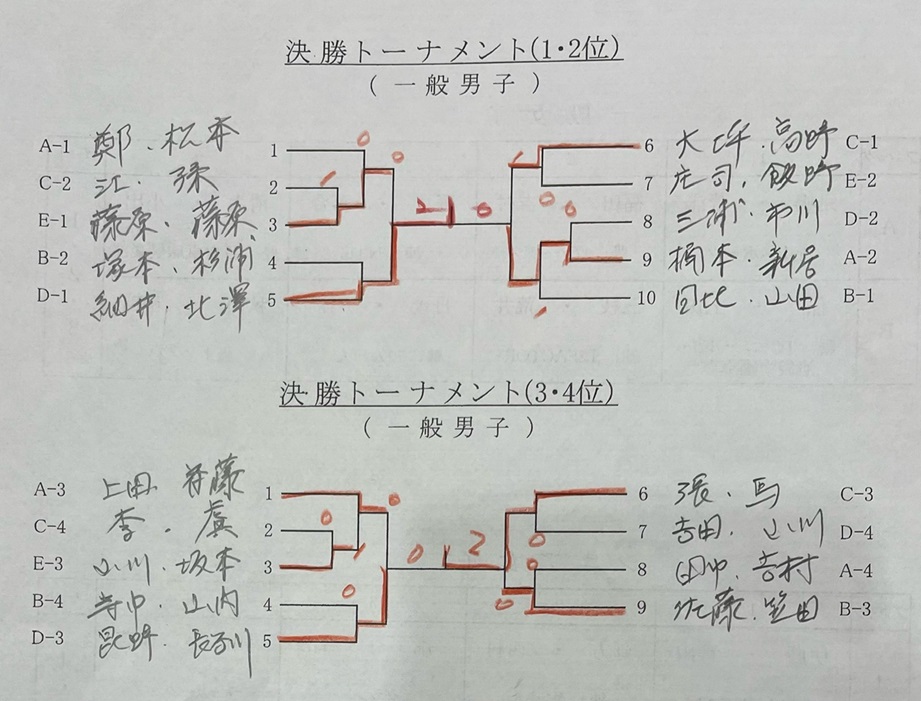 決勝トーナメント(1・2位)
(一般男子)
A-1 鄭・松本 1 0 0 6 大坪・高野 C-1
C-2 江・張 2 1 1 7 庄司・飯野 E-2
E-1 藤原・藤原 3 2 1 0 0 0 8 三浦・市川 D-2
B-2 塚本・杉浦 4 9 橋本・新居 A-2
D-1 細井・北澤 5 1 10 日比・山田 B-1
決勝トーナメント(3・4位)
(一般男子)
A-3 上田・斉藤 1 0 6 張・馬 C-3
C-4 李・虞 2 0 7 吉田・小川 D-4
E-3 小川・坂本 3 1 0 2 0 8 田中・吉村 A-4
B-4 寺中・山内 4 0 0 9 佐藤・笠田 B-3
D-3 昆野・長谷川 5